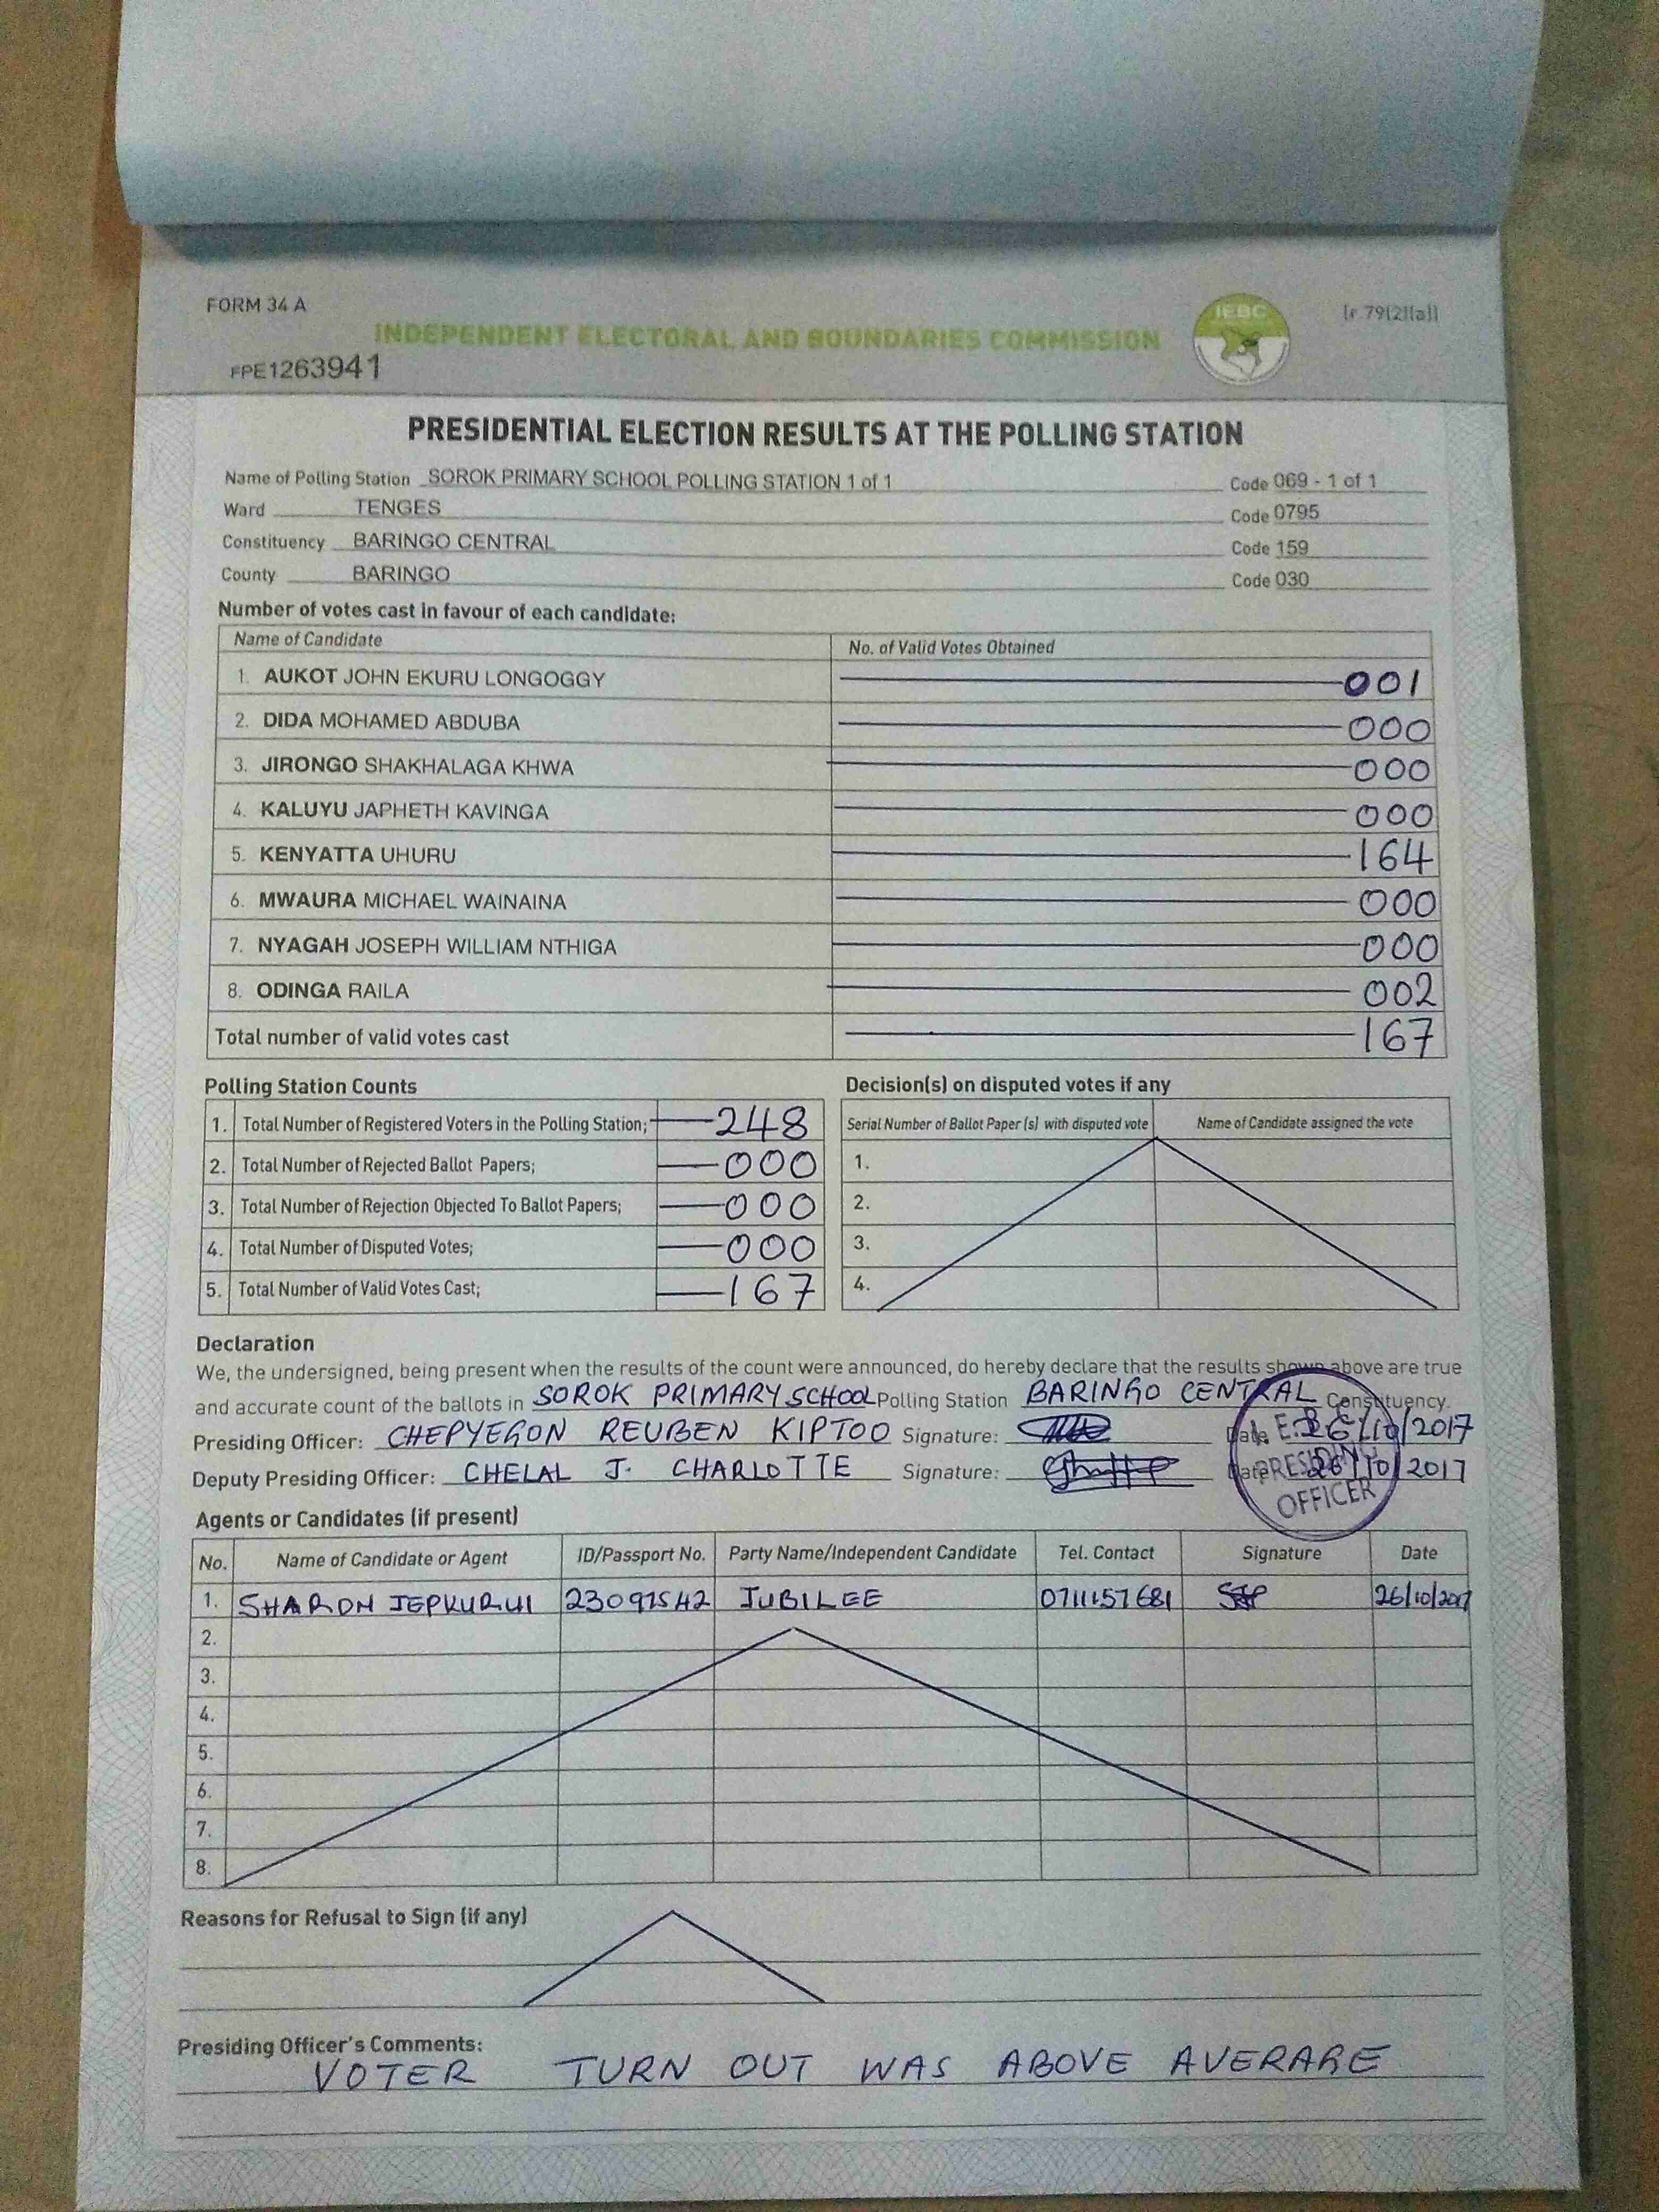 FORM 34 A
IEBC
[r.79(2)(a)]
INDEPENDENT ELECTORAL AND BOUNDARIES COMMISSION
FPE1263941
PRESIDENTIAL ELECTION RESULTS AT THE POLLING STATION
Name of Polling Station SOROK PRIMARY SCHOOL POLLING STATION 1 of 1 Code 069 - 1 of 1
Ward TENGES Code 0795
Constituency BARINGO CENTRAL Code 159
County BARINGO Code 030
Number of votes cast in favour of each candidate:
Name of Candidate No. of Valid Votes Obtained
1. AUKOT JOHN EKURU LONGOGGY 001
2. DIDA MOHAMED ABDUBA 000
3. JIRONGO SHAKHALAGA KHWA 000
4. KALUYU JAPHETH KAVINGA 000
5. KENYATTA UHURU 164
6. MWAURA MICHAEL WAINAINA 000
7. NYAGAH JOSEPH WILLIAM NTHIGA 000
8. ODINGA RAILA 002
Total number of valid votes cast 167
Polling Station Counts
1. Total Number of Registered Voters in the Polling Station; 248
2. Total Number of Rejected Ballot Papers; 000
3. Total Number of Rejection Objected To Ballot Papers; 000
4. Total Number of Disputed Votes; 000
5. Total Number of Valid Votes Cast; 167
Decision(s) on disputed votes if any
Serial Number of Ballot Paper (s) with disputed vote Name of Candidate assigned the vote
1.
2.
3.
4.
Declaration
We, the undersigned, being present when the results of the count were announced, do hereby declare that the results shown above are true
and accurate count of the ballots in SOROK PRIMARY SCHOOL Polling Station BARINGO CENTRAL Constituency.
Presiding Officer: CHEPYEGON REUBEN KIPTOO Signature: Date 26/10/2017
Deputy Presiding Officer: CHELAL J. CHARLOTTE Signature: Date 26/10/2017
I.E.B.C
PRESIDING
OFFICER
Agents or Candidates (if present)
No. Name of Candidate or Agent ID/Passport No. Party Name/Independent Candidate Tel. Contact Signature Date
1. SHARON JUBILEE 0711157681 26/10/2017
2.
3.
4.
5.
6.
7.
8.
Reasons for Refusal to Sign (if any)
Presiding Officer's Comments:
VOTER TURN OUT WAS ABOVE AVERAGE